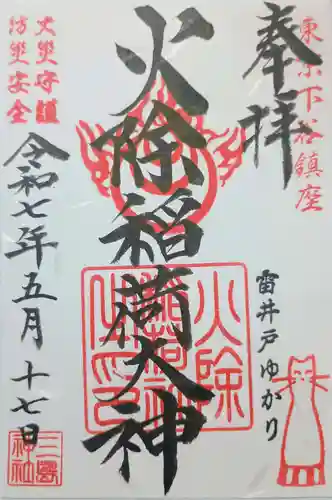 東京下谷鎮座
奉拝
雷井戸ゆかり
火除稲荷大神
火除稲荷神社之印
火災守護
防災安全
令和七年五月十七日
三島神社